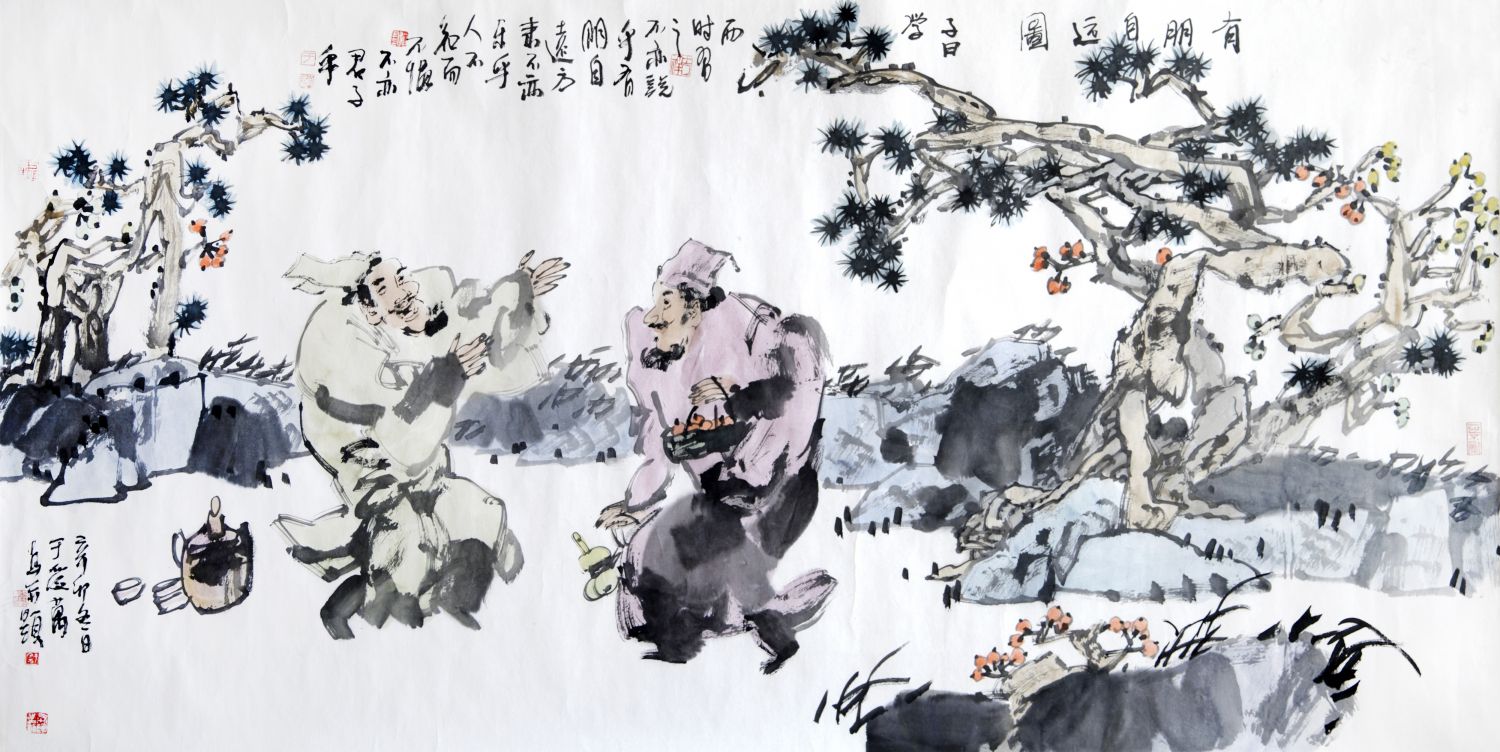 有朋自远圖
子曰
学
而
时習
之
不亦説
乎有
朋自
遠方
来不亦
乐乎
人不
知而
不愠
不亦
君子
乎
辛卯冬日
于
题